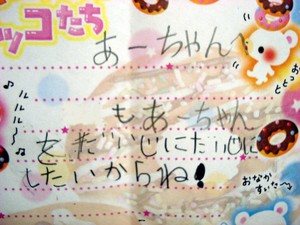 ッコたち
あーちゃんへ
おっとっと
もあーちゃん
♪ルルル〜♪
をだいじに
したいからね!
おなかすいた〜